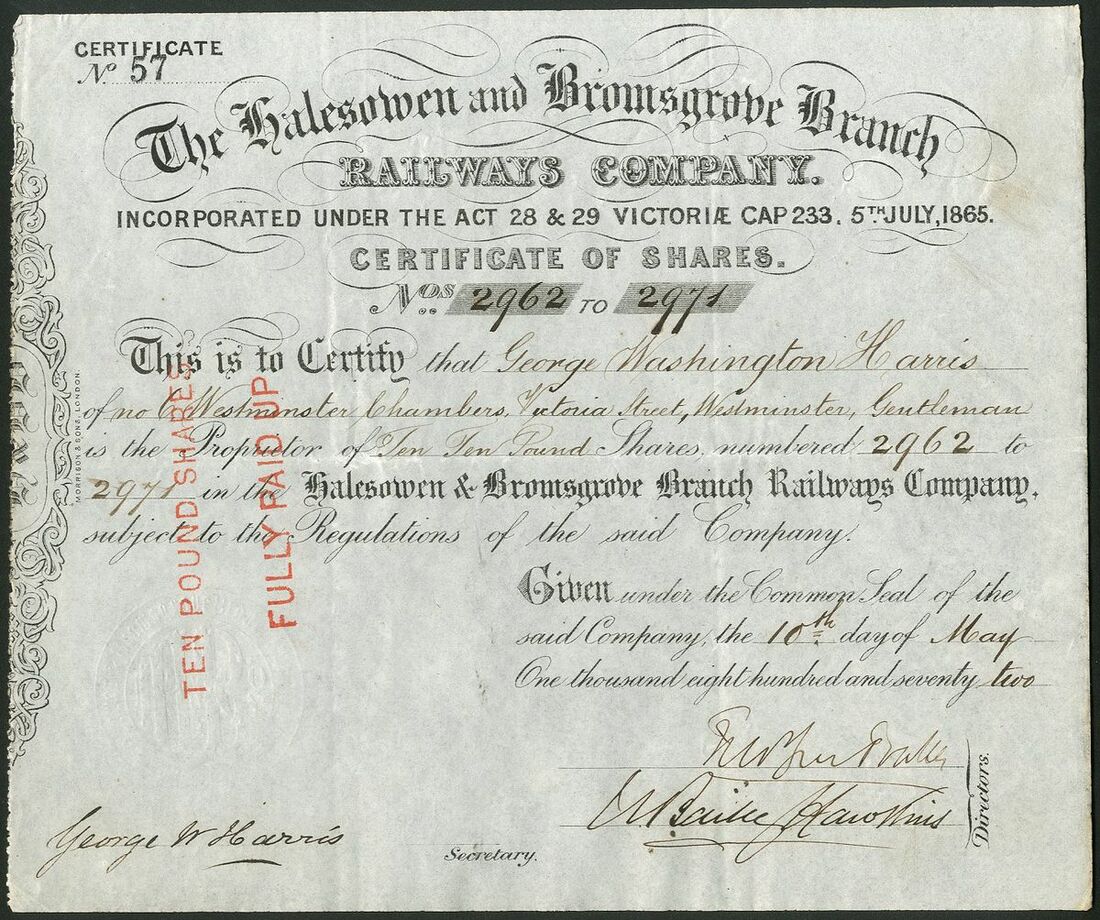 CERTIFICATE
No 57
The Halesowen and Bromsgrove Branch
RAILWAYS COMPANY.
INCORPORATED UNDER THE ACT 28 & 29 VICTORIÆ CAP 233. 5TH JULY, 1865.
CERTIFICATE OF SHARES.
Nos 2962 TO 2971
This is to Certify that George Washington Harris
of no 6 Westminster Chambers, Victoria Street, Westminster, Gentleman
is the Proprietor of Ten Ten Pound Shares, numbered 2962 to
2971 in the Halesowen & Bromsgrove Branch Railways Company,
subject to the Regulations of the said Company.
Given under the Common Seal of the
said Company, the 10th day of May
One thousand eight hundred and seventy two
TEN POUND SHARES
FULLY PAID UP
MORRISON & SONS, LONDON.
Baillie Hawkins
Directors.
George W Harris
Secretary.